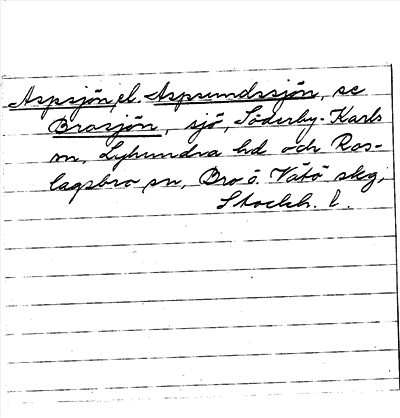 Aspsjön, el. Aspsundssjön, se
Brosjön, sjö, Söderby-Karls
sn, Lyhundra hd och Ros-
lagsbro sn, Bro o. Vätö skg,
Stockh. l.